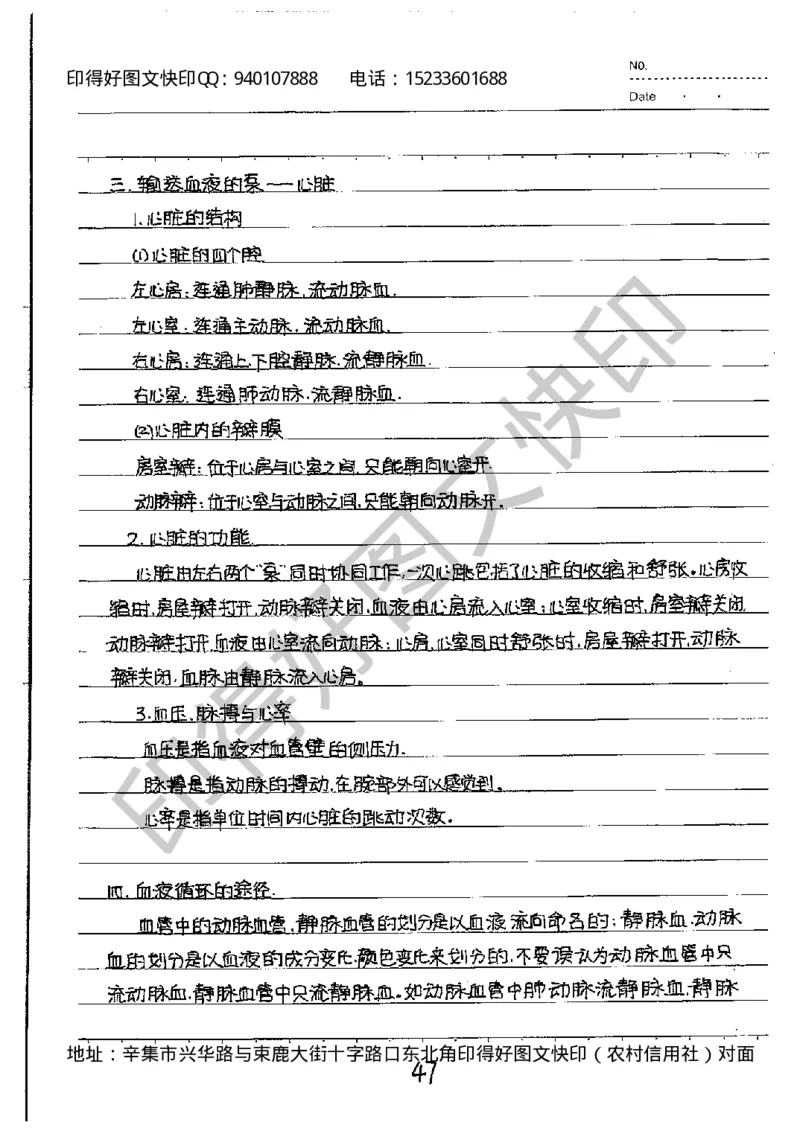 印得好图文快印QQ：940107888 电话：15233601688
No.
Date
三.输送血液的泵——心脏
1.心脏的结构
(1)心脏的四个腔
左心房：连通肺静脉,流动脉血.
左心室：连通主动脉,流动脉血.
右心房：连通上、下腔静脉,流静脉血.
右心室：连通肺动脉,流静脉血.
(2)心脏内的瓣膜
房室瓣：位于心房与心室之间,只能朝向心室开.
动脉瓣：位于心室与动脉之间,只能朝向动脉开。
2.心脏的功能
心脏由左右两个“泵”同时协同工作,一次心跳包括了心脏的收缩和舒张。心房收
缩时,房屋瓣打开,动脉瓣关闭,血液由心房流入心室;心室收缩时,房室瓣关闭
动脉瓣打开,血液由心室流向动脉;心房,心室同时舒张时,房屋瓣打开,动脉
瓣关闭,血脉由静脉流入心房。
3.血压、脉搏与心率
血压是指血液对血管壁的侧压力.
脉搏是指动脉的搏动,在腕部外可以感觉到。
心率是指单位时间内心脏的跳动次数。
四.血液循环的途径.
血管中的动脉血管、静脉血管的划分是以血液流向命名的;静脉血、动脉
血的划分是以血液的成分变化、颜色变化来划分的,不要误认为动脉血管中只
流动脉血,静脉血管中只流静脉血。如动脉血管中肺动脉流静脉血,静脉
地址：辛集市兴华路与束鹿大街十字路口东北角印得好图文快印（农村信用社）对面
47
印得好图文快印